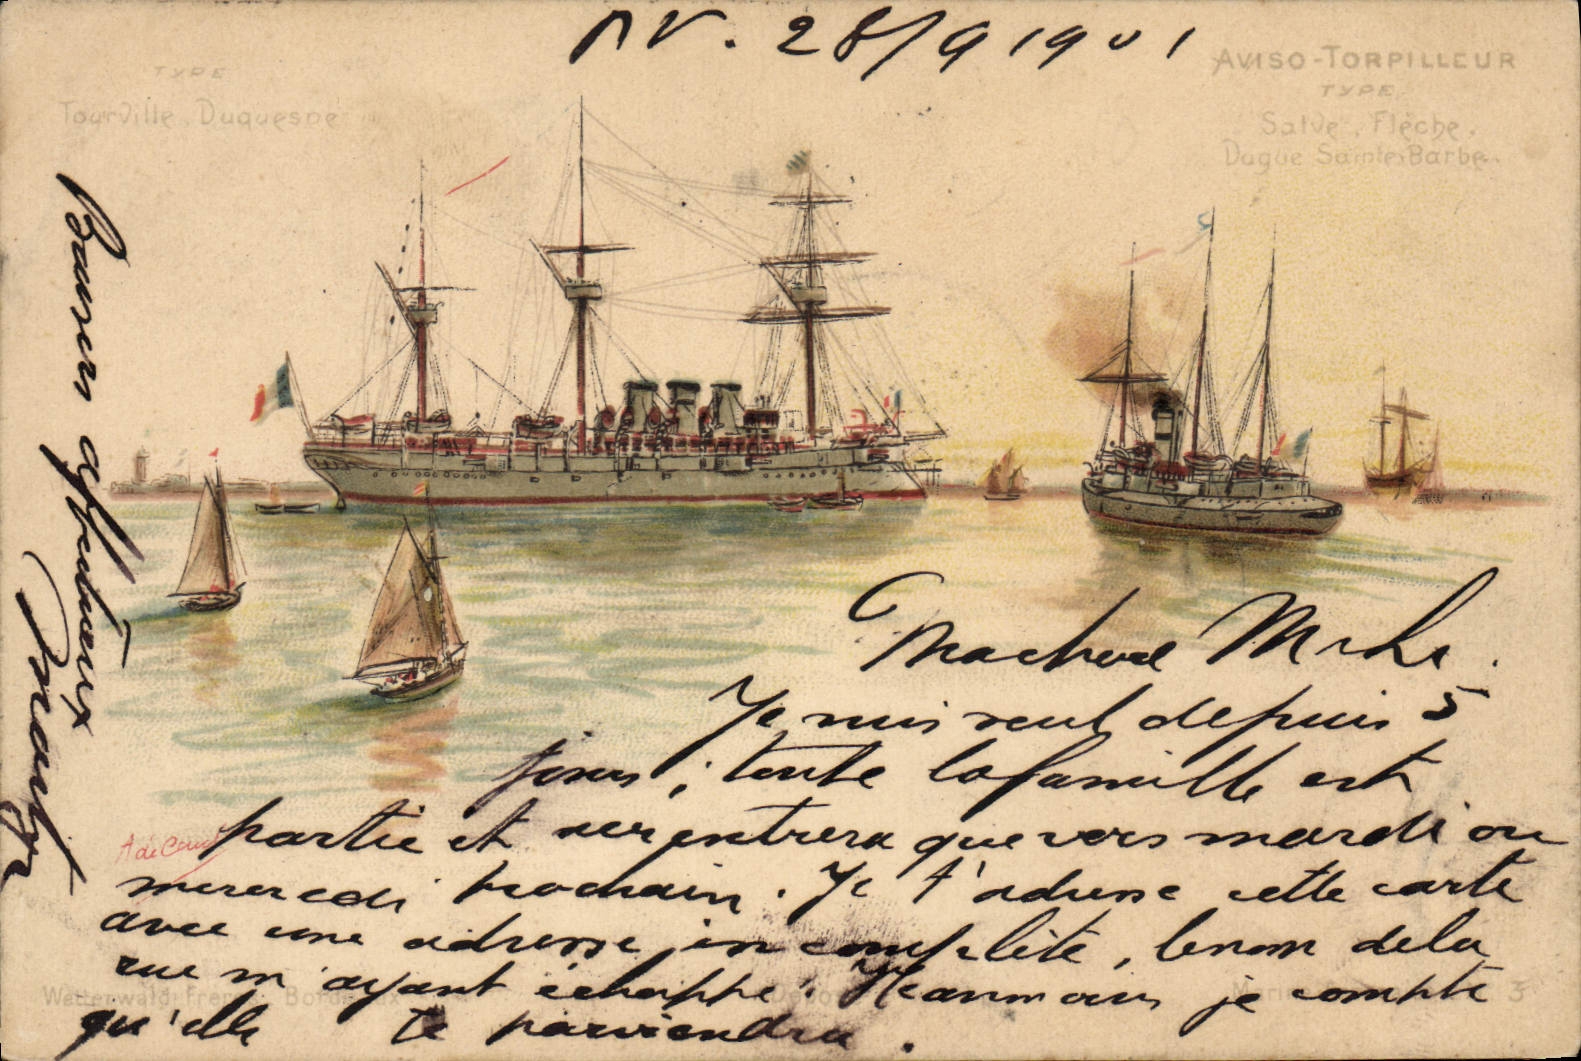 28/9 1901
TYPE
Tourville. Duquesne
AVISO-TORPILLEUR
TYPE
Salve. Flèche.
Dague Sainte Barbe.
Je suis seul depuis 5
jours ; toute la famille est
partie et ne rentrera que vers mardi ou
mercredi prochain. Je t'adresse cette carte
avec une adresse incomplète, le nom de la
rue m'ayant échappé. Néanmoins je compte
qu'elle te parviendra.
Baisers affectueux
Wetterwald Frères Bordeaux